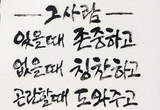 그사람
있을때 존중하고
없을때 칭찬하고
곤란할때 도와주고